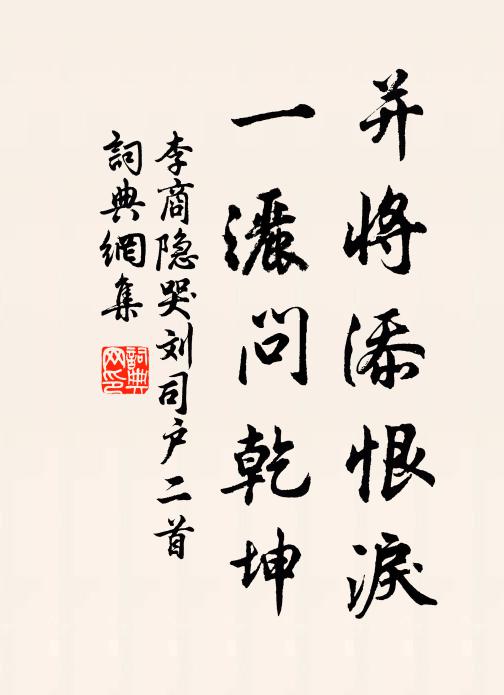 并将添恨淚
一灑問乾坤
李商隐哭刘司户二首
詞典網集
詞典
网印